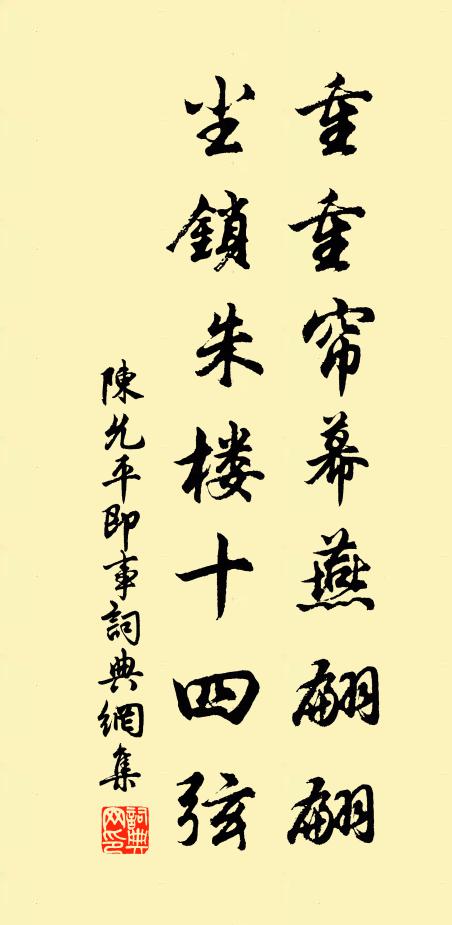 重重帘幕燕翩翩
尘锁朱楼十四弦
陳允平即事詞典網集
詞典网印